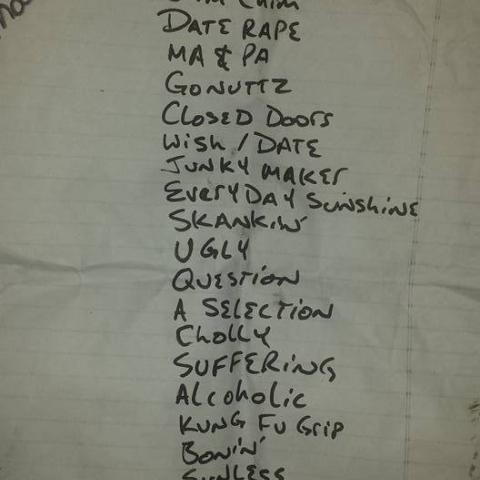 DATE RAPE
MA & PA
GONUTTZ
CLOSED DOORS
WISH / DATE
JUNKY MAKER
EVERYDAY SUNSHINE
SKANKIN'
UGLY
QUESTION
A SELECTION
CHOLLY
SUFFERING
Alcoholic
KUNG FU GRIP
BONIN'
SUNLESS